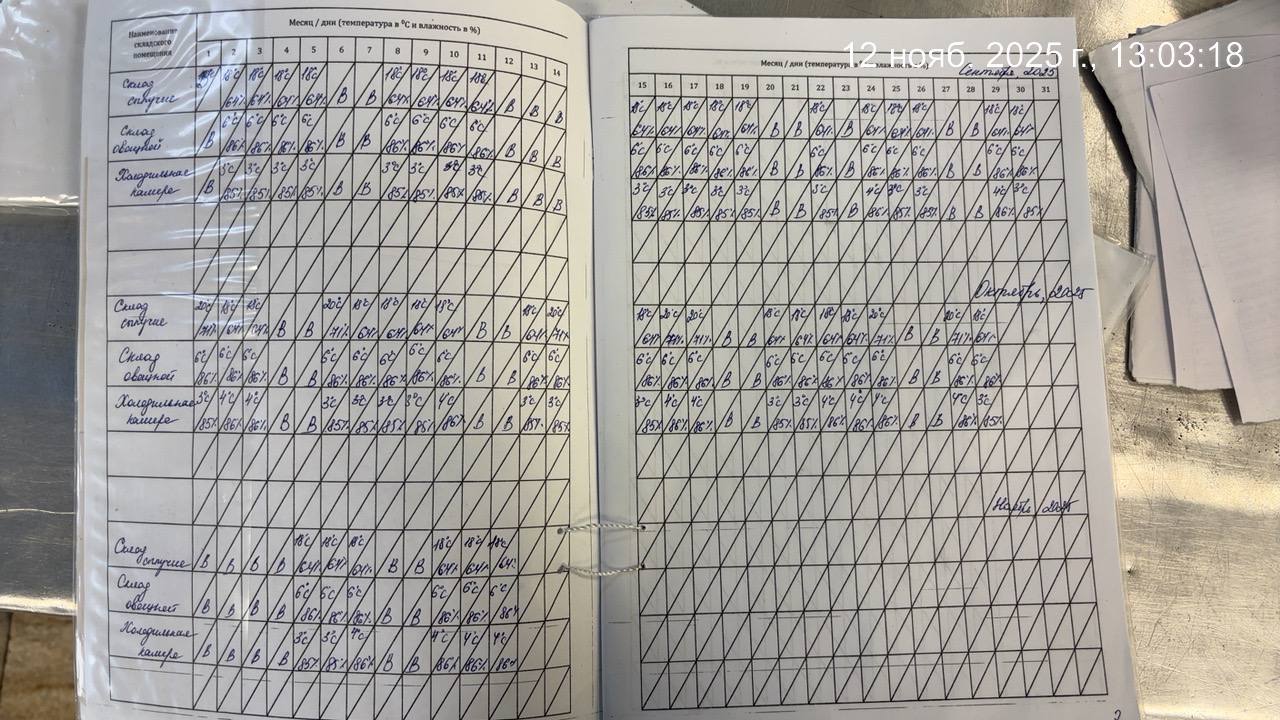 12 нояб. 2025 г., 13:03:18
Наименование складского помещения
Месяц / дни (температура в °С и влажность в %)
1 2 3 4 5 6 7 8 9 10 11 12 13 14
Склад сыпучие
18°С 18°С 18°С 18°С 18°С 18°С 18°С 18°С
64% 64% 64% 64% В В 64% 64% 64% 64% В В В
Склад овощной
6°С 6°С 6°С 6°С 6°С 6°С 6°С 6°С
В 86% 86% 86% 86% В В 86% 86% 86% 86% В В В
Холодильная камера
3°С 3°С 3°С 3°С 3°С 3°С 3°С 3°С
В 85% 85% 85% 85% В В 85% 85% 85% 85% В В В
Склад сыпучие
20°С 18°С 18°С 20°С 18°С 18°С 18°С 18°С 18°С 20°С
71% 64% 64% В В 71% 64% 64% 64% 64% В В 64% 71%
Склад овощной
6°С 6°С 6°С 6°С 6°С 6°С 6°С 6°С 6°С 6°С
86% 86% 86% В В 86% 86% 86% 86% 86% В В 86% 86%
Холодильная камера
3°С 4°С 4°С 3°С 3°С 3°С 3°С 4°С 3°С 3°С
85% 86% 86% В В 85% 85% 85% 85% 86% В В 85% 85%
Склад сыпучие
18°С 18°С 18°С 18°С 18°С 18°С
В В В В 64% 64% 64% В В 64% 64% 64%
Склад овощной
6°С 6°С 6°С 6°С 6°С 6°С
В В В В 86% 86% 86% В В 86% 86% 86%
Холодильная камера
3°С 3°С 4°С 4°С 4°С 4°С
В В В В 85% 85% 86% В В 86% 86% 86%
Месяц / дни (температура в влажность в %)
Сентябрь, 2025
15 16 17 18 19 20 21 22 23 24 25 26 27 28 29 30 31
18°С 18°С 18°С 18°С 18°С 18°С 18°С 18°С 18°С 18°С 18°С
64% 64% 64% 64% 64% В В 64% В 64% 64% 64% В В 64% 64%
6°С 6°С 6°С 6°С 6°С 6°С 6°С 6°С 6°С 6°С 6°С
86% 86% 86% 86% 86% В В 86% В 86% 86% 86% В В 86% 86%
3°С 3°С 3°С 3°С 3°С 3°С 4°С 3°С 3°С 4°С 3°С
85% 85% 85% 85% 85% В В 85% В 86% 85% 85% В В 86% 85%
Октябрь, 2025
18°С 20°С 20°С 18°С 18°С 18°С 18°С 20°С 20°С 18°С
64% 71% 71% В В 64% 64% 64% 64% 71% В В 71% 64%
6°С 6°С 6°С 6°С 6°С 6°С 6°С 6°С 6°С 6°С
86% 86% 86% В В 86% 86% 86% 86% 86% В В 86% 86%
3°С 4°С 4°С 3°С 3°С 4°С 4°С 4°С 4°С 3°С
85% 86% 86% В В 85% 85% 86% 86% 86% В В 86% 85%
2025